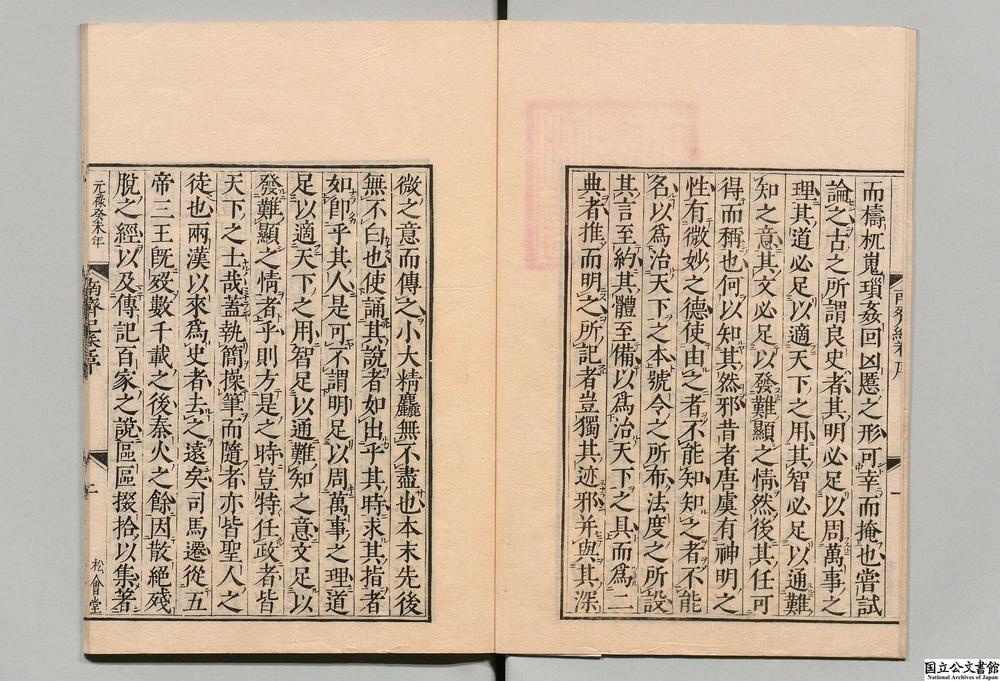 而檮杌嵬瑣姦回凶慝之形可幸而掩也嘗試
論之古之所謂良史者其明必足以周萬事之
理其道必足以適天下之用其智必足以通難
知之意其文必足以發難顯之情然後其任可
得而稱也何以知其然邪昔者唐虞有神明之
性有微妙之德使由之者不能知知之者不能
名以爲治天下之本號令之所布法度之所設
其言至約其體至備以爲治天下之具而爲二
典者推而明之所記者豈獨其迹邪并與其深
微之意而傳之小大精麤無不盡也本末先後
無不白也使誦其說者如出乎其時求其指者
如卽乎其人是可不謂明足以周萬事之理道
足以適天下之用智足以通難知之意文足以
發難顯之情者乎則方是之時豈特任政者皆
天下之士哉蓋執簡操筆而隨者亦皆聖人之
徒也兩漢以來爲史者去之遠矣司馬遷從五
帝三王旣歿數千載之後秦火之餘因散絕殘
脫之經以及傳記百家之說區區掇拾以集著
元祿癸未年
二
松會堂
国立公文書館
National Archives of Japan